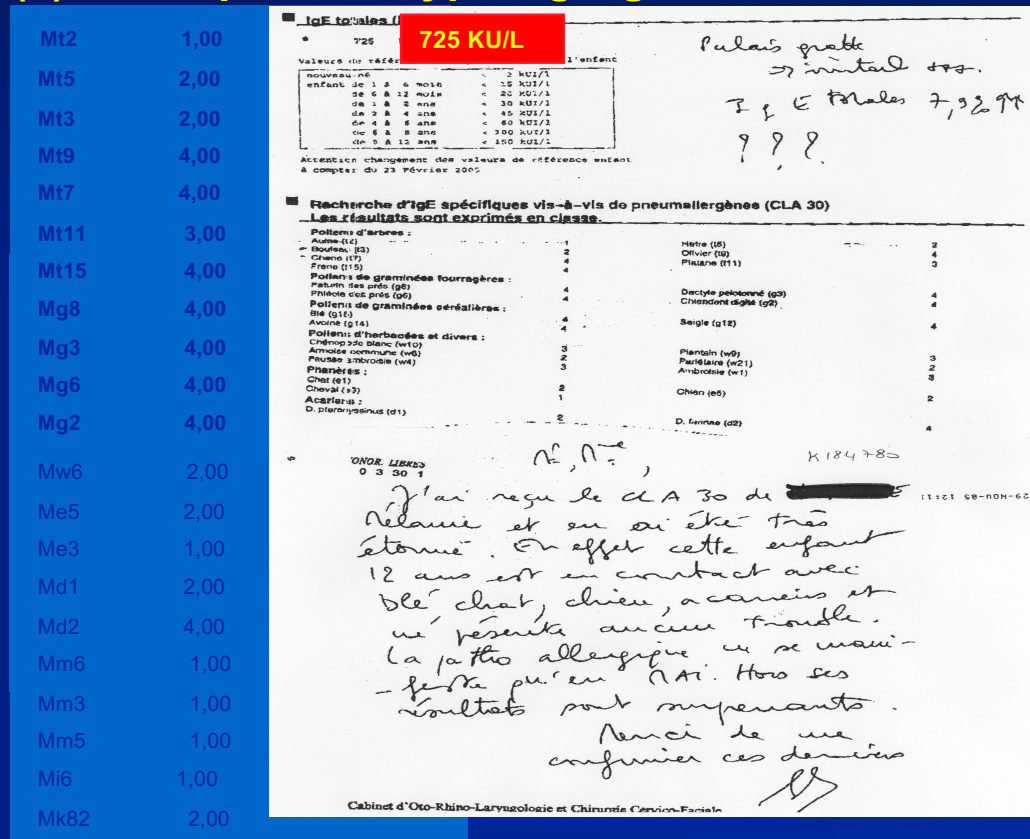 Mt2 1,00
Mt5 2,00
Mt3 2,00
Mt9 4,00
Mt7 4,00
Mt11 3,00
Mt15 4,00
Mg8 4,00
Mg3 4,00
Mg6 4,00
Mg2 4,00
Mw6 2,00
Me5 2,00
Me3 1,00
Md1 2,00
Md2 4,00
Mm6 1,00
Mm3 1,00
Mm5 1,00
Mi6 1,00
Mk82 2,00
IgE totales (
725
725 KU/L
Valeurs de référ l'enfant
nouveau-né < 2 kUI/l
enfant de 1 à 6 mois < 15 kUI/l
de 6 à 12 mois < 20 kUI/l
de 1 à 2 ans < 30 kUI/l
de 2 à 4 ans < 45 kUI/l
de 4 à 6 ans < 60 kUI/l
de 6 à 8 ans < 100 kUI/l
de 9 à 12 ans < 150 kUI/l
Attention changement des valeurs de référence enfant
à compter du 23 Février 2005
Palais gratte
I g E totales
? ? ?
Recherche d'IgE spécifiques vis-à-vis de pneumallergènes (CLA 30)
Les résultats sont exprimés en classe.
Pollens d'arbres :
Aulne (t2) 1 Hetre (t5)
Bouleau (t3) 2 Olivier (t9) 4
Chene (t7) 4 Platane (t11) 3
Frene (t15) 4
Pollens de graminées fourragères :
Paturin des prés (g8) 4 Dactyle pelotonné (g3) 4
Phléole des prés (g6) 4 Chiendent digité (g2) 4
Pollens de graminées céréalières :
Blé (g15) 4 Seigle (g12) 4
Avoine (g14) 4
Pollens d'herbacées et divers :
Chénopode blanc (w10) 3 Plantain (w9) 3
Armoise commune (w6) 2 Pariétaire (w21) 2
Fausse ambroisie (w4) 3 Ambroisie (w1) 3
Phanères :
Chat (e1) 2 Chien (e5) 2
Cheval (e3) 1
Acariens :
D. pteronyssinus (d1) 2 D. farinae (d2) 4
HONOR. LIBRES
0 3 30 1
K184780
J'ai reçu le CLA 30 de
Mélanie et en ai été très
étonné. En effet cette enfant
12 ans est en contact avec
blé chat, chien, acariens et
ne présente aucun trouble.
La patho allergique ne se mani-
-feste qu'en MAI. Hors ses
résultats sont surprenants.
Merci de me
confirmer ces derniers
Cabinet d'Oto-Rhino-Laryngologie et Chirurgie Cervico-Faciale